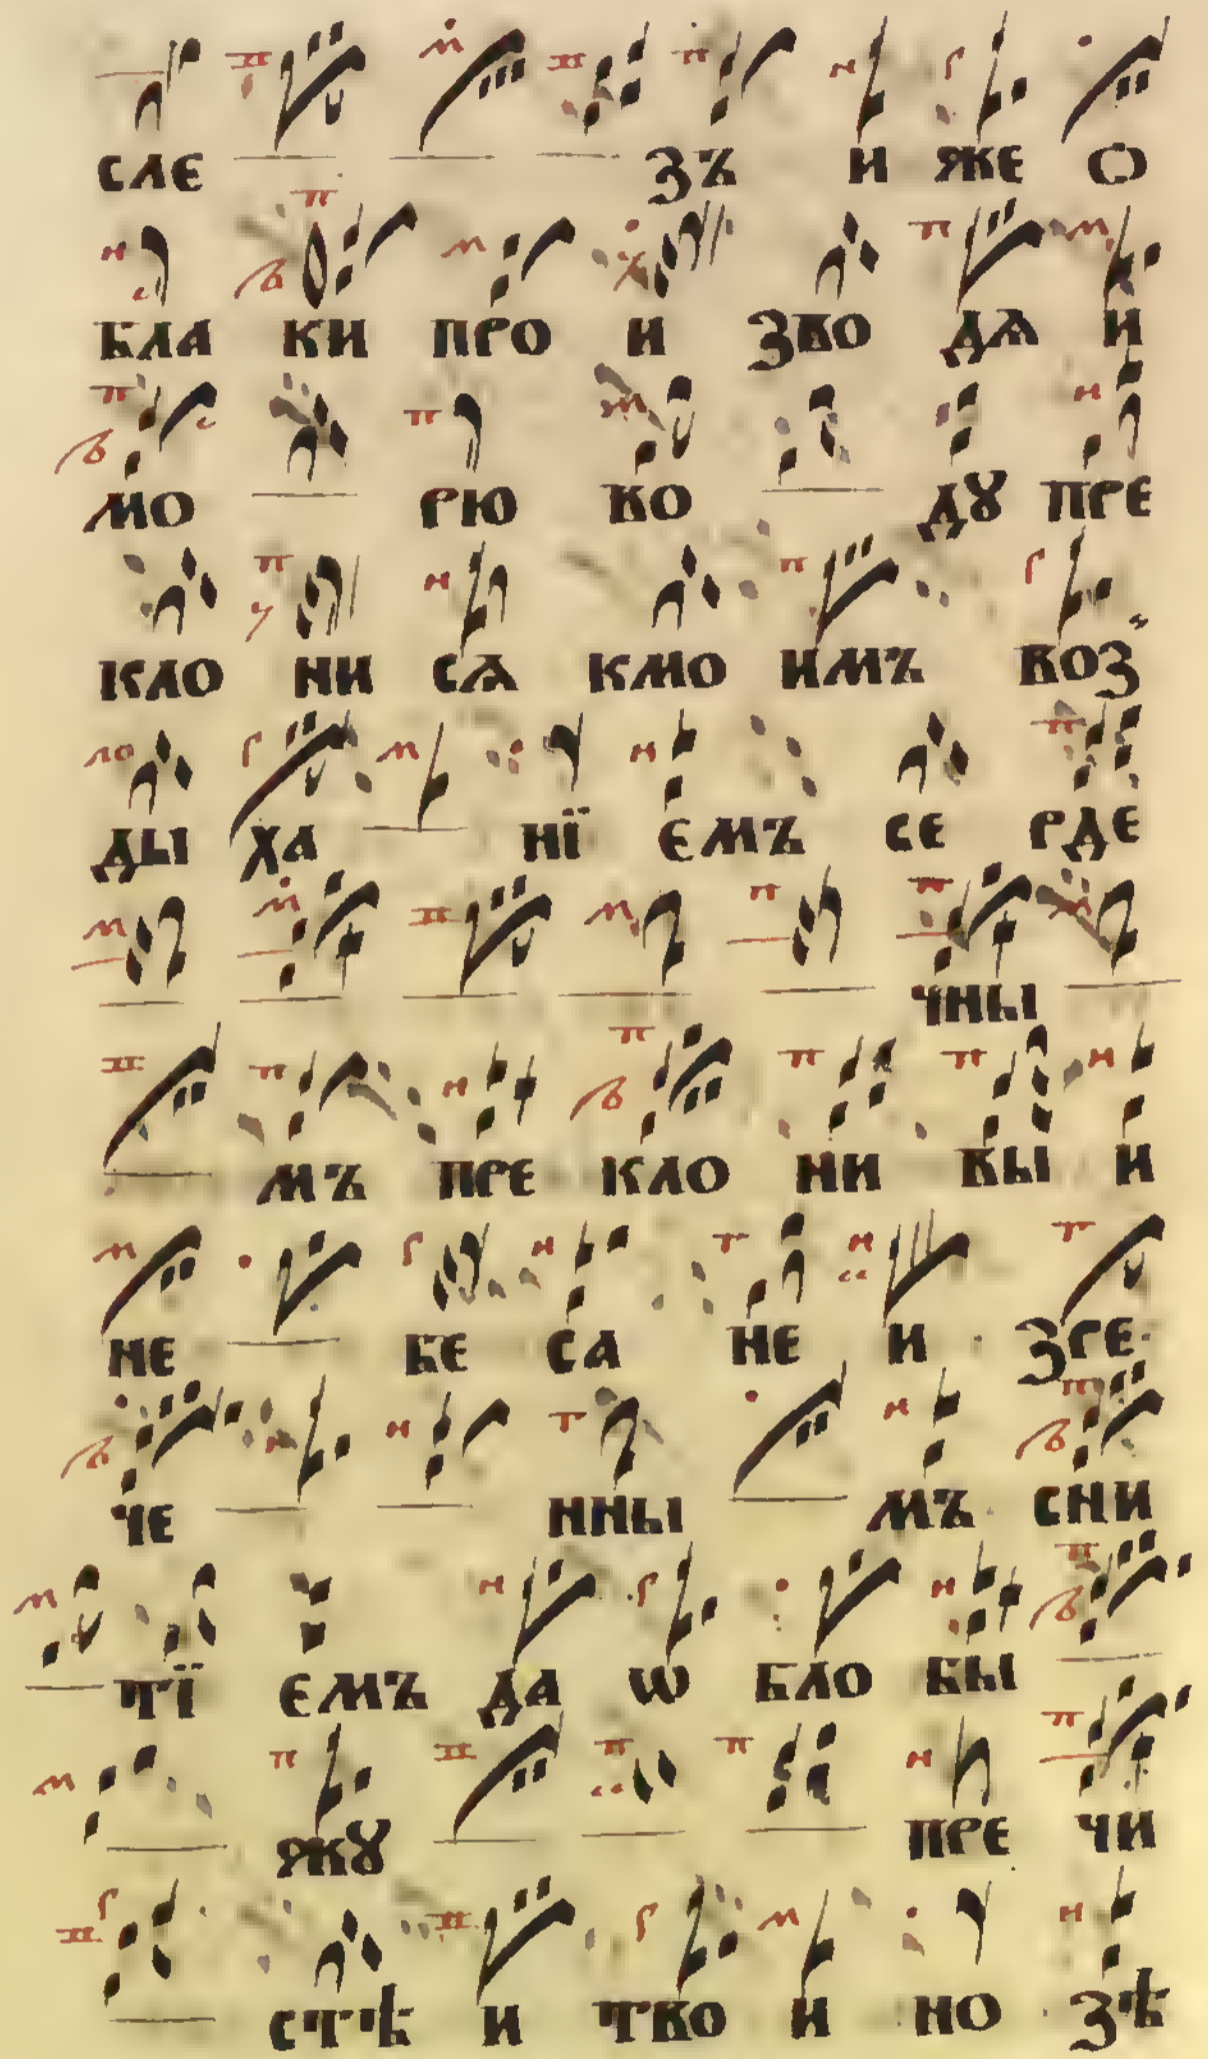 сле зъ и яже о
бла ки про и зво дѧ и
мо рю во ду пре
кло ни сѧ кмо имъ воз
ды ха нї емъ се рде
чны
мъ пре кло ни вы и
не бе са не и зре
че нны мъ сни
тї емъ да ѡ бло бы
жу пре чи
стѣ и тво и но зѣ